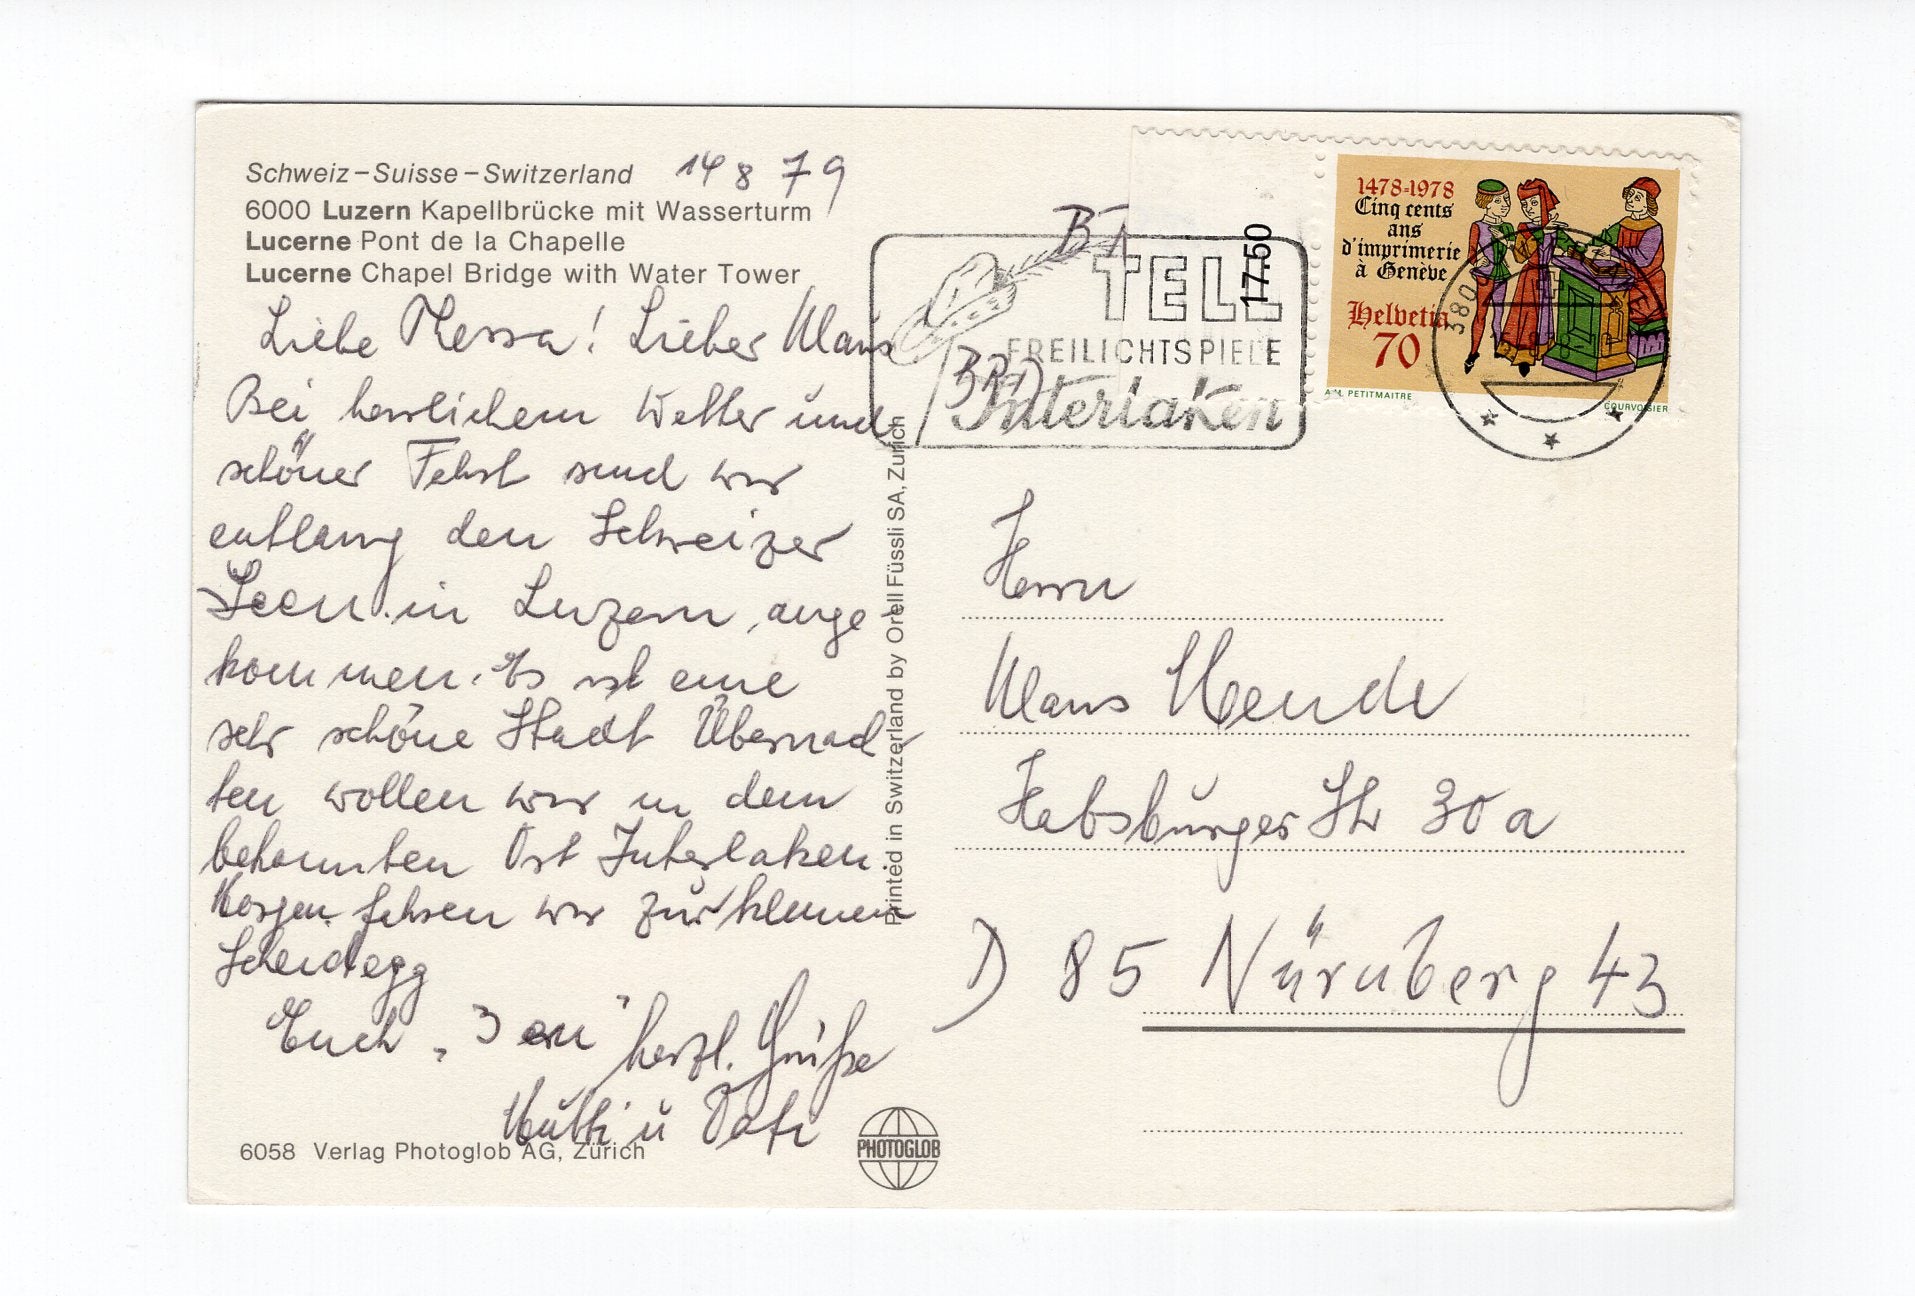 Schweiz – Suisse – Switzerland 14 8 79
6000 Luzern Kapellbrücke mit Wasserturm
Lucerne Pont de la Chapelle
Lucerne Chapel Bridge with Water Tower
Liebe ! Lieber Klaus
Bei herrlichem Wetter und
schöner Fahrt sind wir
entlang den Schweizer
Seen in Luzern ange
kommen. Es ist eine
sehr schöne Stadt Übernach
ten wollen wir in dem
bekannten Ort Interlaken
Morgen fahren wir zur kleinen
Scheidegg
Euch "3 en" herzl. Grüße
Mutti u Vati
6058 Verlag Photoglob AG, Zürich
PHOTOGLOB
Printed in Switzerland by Orell Füssli SA, Zurich
TELL
FREILICHTSPIELE
Interlaken
BRD
17.50
1478-1978
Cinq cents
ans
d'imprimerie
à Genève
Helvetia
70
A.M. PETITMAITRE
COURVOISIER
Herrn
Klaus
Habsburger Str 30a
D 85 Nürnberg 43